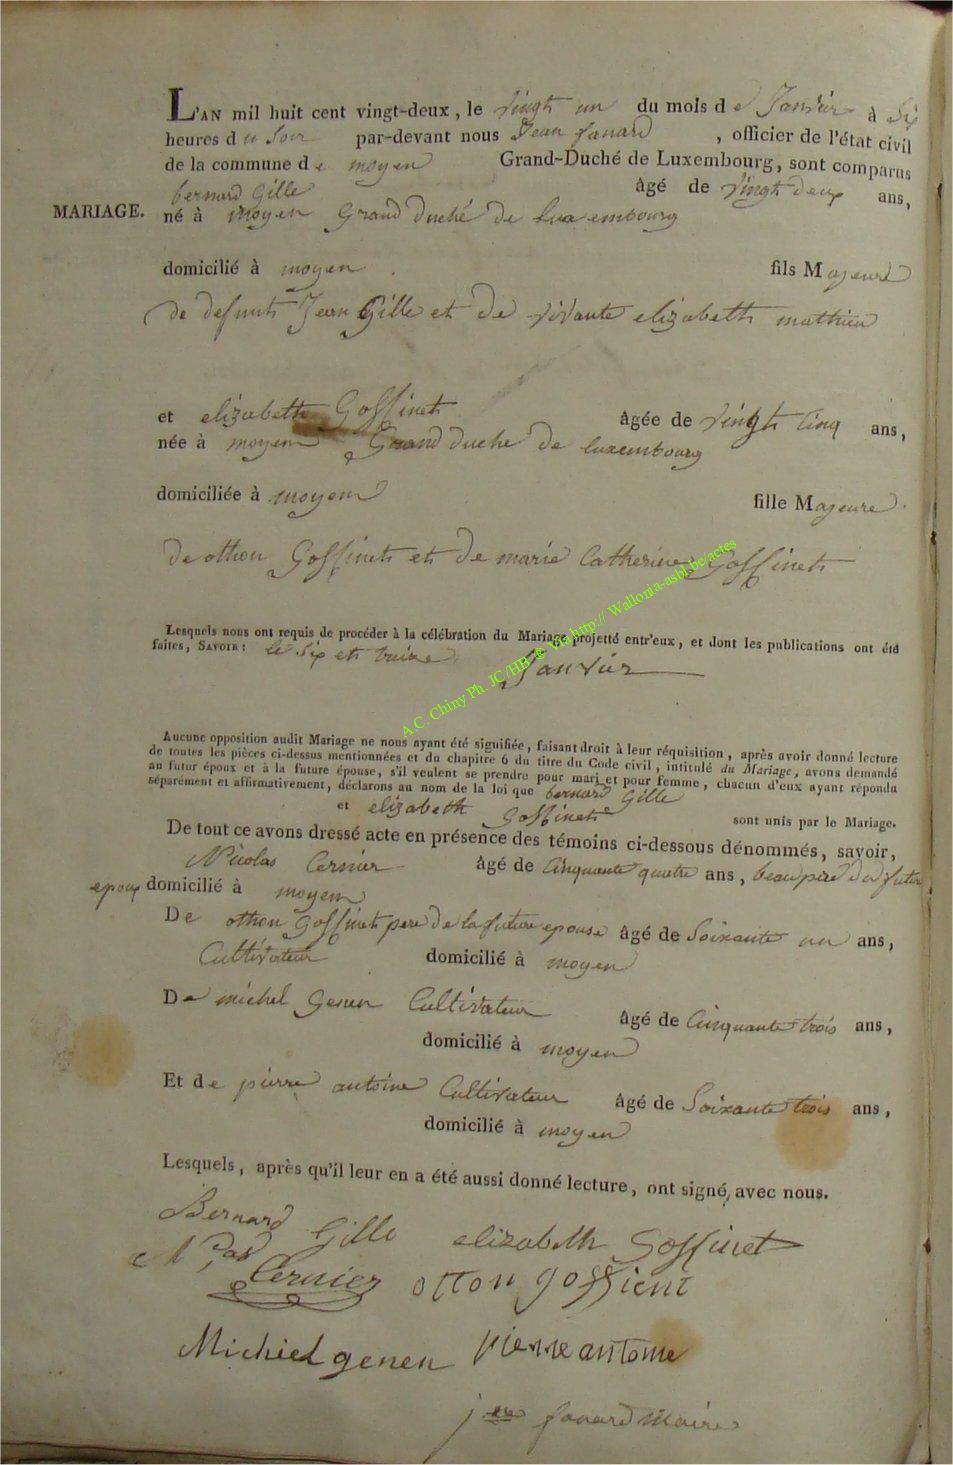 L'AN mil huit cent vingt-deux, le vingt un du mois de Janvier à Six
heures du Soir par-devant nous Jean fanard, officier de l'état civil
de la commune de moyen Grand-Duché de Luxembourg, sont comparus
bernard Gille âgé de vingt deux ans,
MARIAGE. né à moyen Grand duché de Luxembourg
domicilié à moyen fils Majeure
de defunts Jean Gille et de vivante elizabeth mathieu
et elizabeth Goffinet âgée de vingt Cinq ans,
née à moyen Grand duche de luxembourg
domiciliée à moyen fille Majeure
de othon Goffinet et de marie Catherine Goffinet
Lesquels nous ont requis de procéder à la célébration du Mariage projetté entr'eux, et dont les publications ont été
faites, SAVOIR : le Six et treize Janvier
A.C. Chiny Ph. JC/HB © via http:// Wallonia-asbl.be/actes
Aucune opposition audit Mariage ne nous ayant été signifiée, faisant droit à leur réquisition, après avoir donné lecture
de toutes les pièces ci-dessus mentionnées et du chapitre 6 du titre du Code civil, intitulé du Mariage, avons demandé
au futur époux et à la future épouse, s'il veulent se prendre pour mari et pour femme, chacun d'eux ayant répondu
séparément et affirmativement, déclarons au nom de la loi que bernard Gille
et elizabeth Goffinet sont unis par le Mariage.
De tout ce avons dressé acte en présence des témoins ci-dessous dénommés, savoir,
Nicolas Cernier âgé de Cinquante quatre ans, beaupere du futur
epoux domicilié à moyen
De othon Goffinet pere de la future epouse âgé de Soixante un ans,
Cultivateur domicilié à moyen
De michel Genen Cultivateur âgé de Cinquante trois ans,
domicilié à moyen
Et de pierre antoine Cultivateur âgé de Soixante trois ans,
domicilié à moyen
Lesquels, après qu'il leur en a été aussi donné lecture, ont signé, avec nous.
Bernard Gille elizabeth Goffinet
Cernier otton goffient
Michiel genen pierre antoine
fanard maire